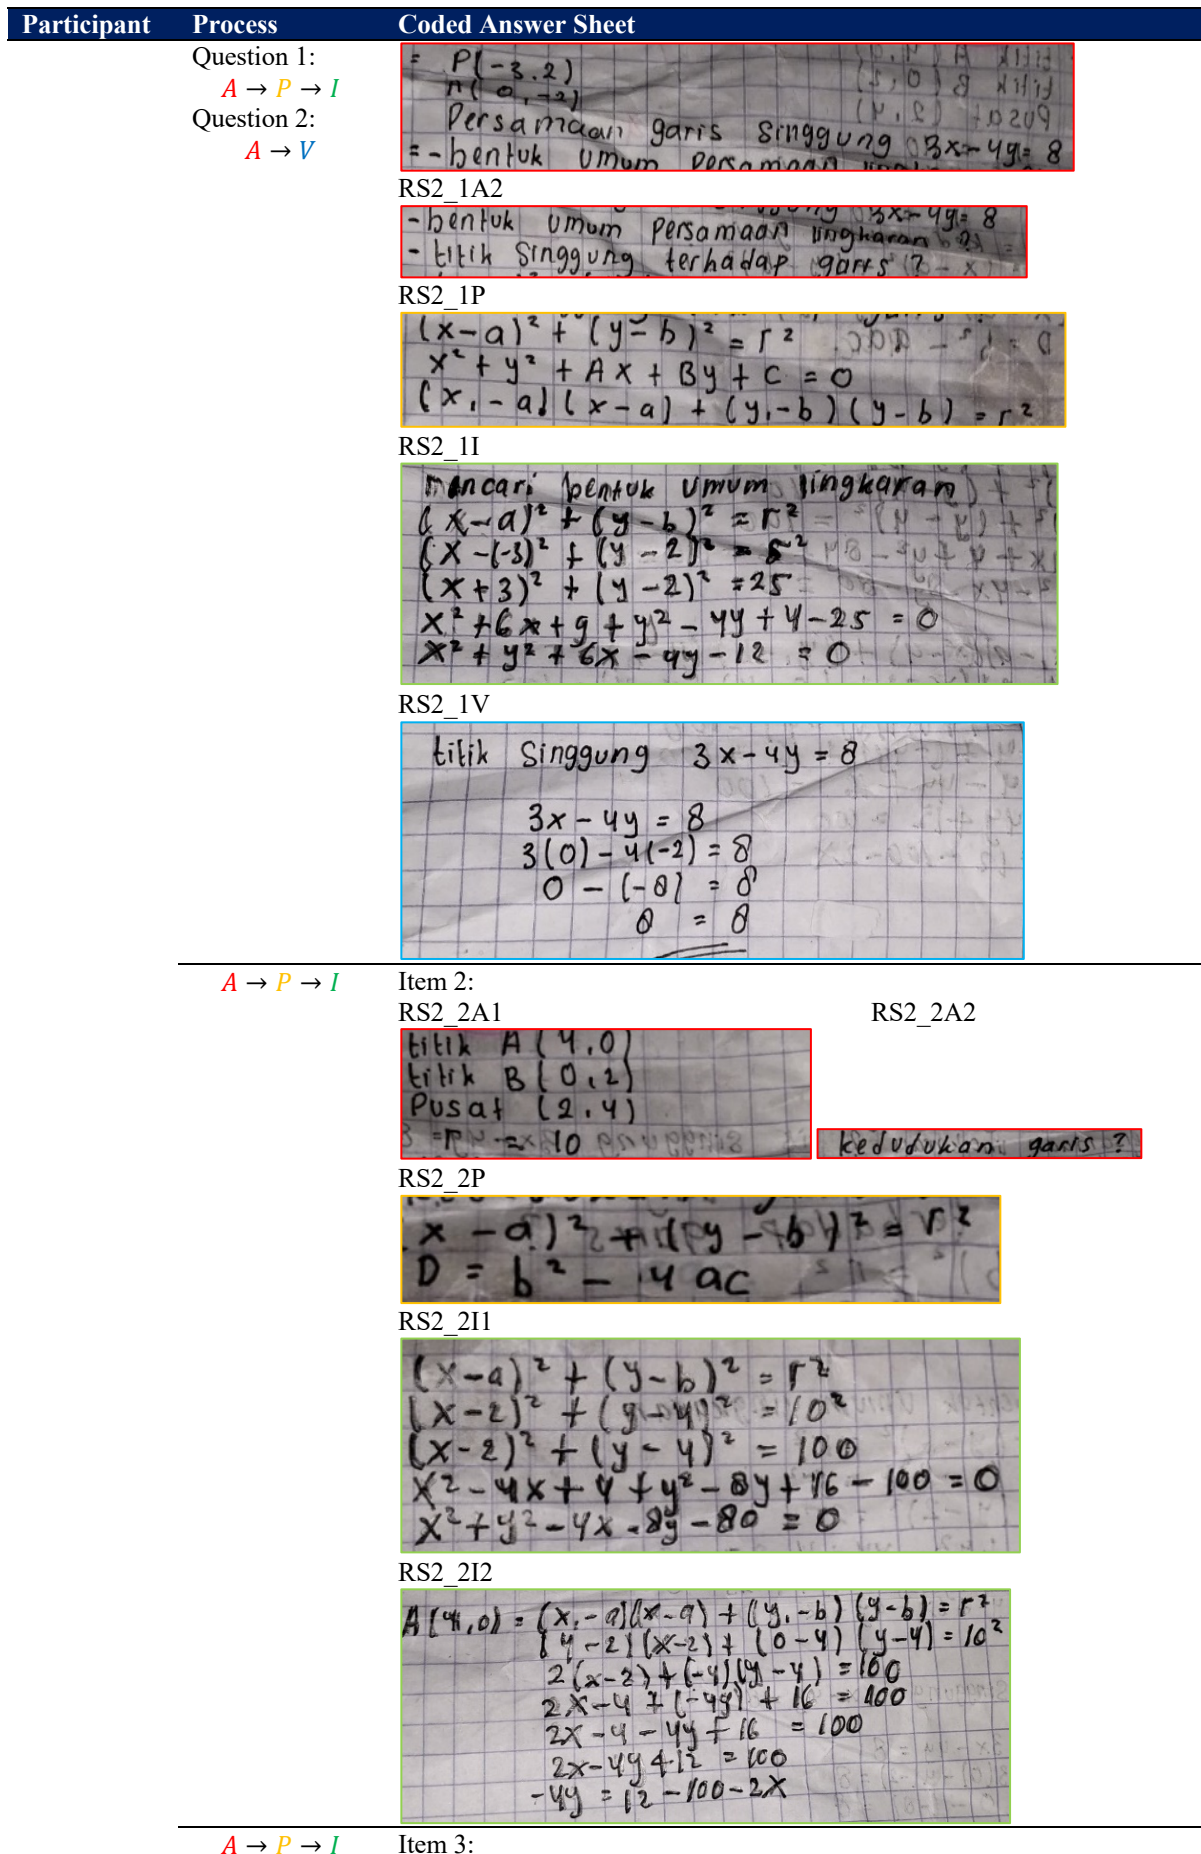 Participant Process Coded Answer Sheet
Question 1:
A → P → I
Question 2:
A → V
= P(-3.2)
n( 0, -2)
Persamaan garis singgung 3x-4y= 8
=- bentuk umum persamaan
RS2_1A2
3x-4y= 8
- bentuk umum persamaan lingkaran ?
- titik singgung terhadap garis ?
RS2_1P
(x-a)² + (y-b)² = r²
x² + y² + Ax + By + C = 0
(x,-a)(x-a) + (y,-b)(y-b) = r²
RS2_1I
mencari bentuk umum lingkaran
(x-a)² + (y-b)² = r²
(x-(-3)² + (y-2)² = 5²
(x+3)² + (y-2)² =25
x²+6x+9+y²-4y+4-25 = 0
x²+y²+6x-4y-12 = 0
RS2_1V
titik Singgung 3x-4y = 8
3x-4y = 8
3(0)-4(-2) = 8
0 - (-8) = 8
8 = 8
A → P → I Item 2:
RS2_2A1 RS2_2A2
titik A (4,0)
titik B (0,2)
Pusat (2,4)
= 10
kedudukan garis ?
RS2_2P
x - a)² + (y - b)² = r²
D = b² - 4 ac
RS2_2I1
(x-a)² + (y-b)² = r²
(x-2)² + (y-4)² = 10²
(x-2)² + (y-4)² = 100
x²-4x+4+y²-8y+16-100 = 0
x²+y²-4x-8y-80 = 0
RS2_2I2
A(4,0) = (x,-a)(x-a) + (y,-b)(y-b) = r²
(4-2)(x-2)+(0-4)(y-4) = 10²
2(x-2)+(-4)(y-4) = 100
2x-4+(-4y)+16 = 100
2x-4-4y+16 = 100
2x-4y+12 = 100
-4y = 12-100-2x
A → P → I Item 3: